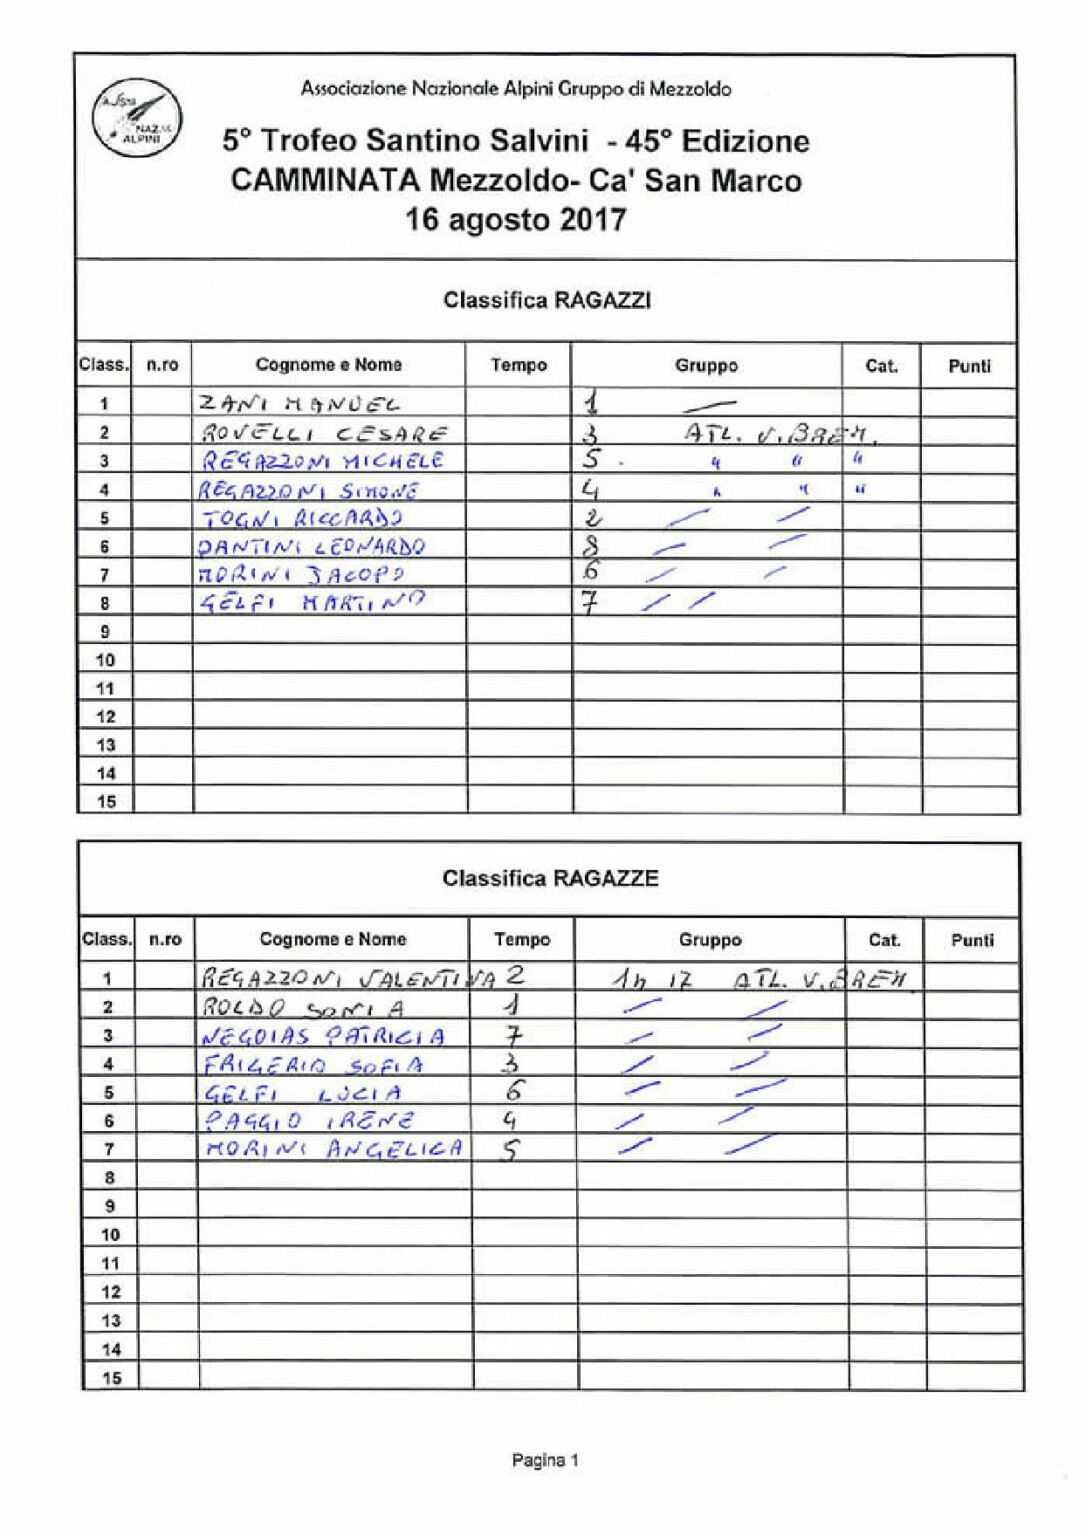 Associazione Nazionale Alpini Gruppo di Mezzoldo
NAZ.
ALPINI
5° Trofeo Santino Salvini - 45° Edizione
CAMMINATA Mezzoldo- Ca' San Marco
16 agosto 2017
Classifica RAGAZZI
Class. n.ro Cognome e Nome Tempo Gruppo Cat. Punti
1 ZANI MANUEL 1 —
2 ROVELLI CESARE 3 ATL. V. BREM.
3 REGAZZONI MICHELE 5 . " " "
4 REGAZZONI SIMONE 4 " " "
5 TOGNI RICCARDO 2 — —
6 DANTINI LEONARDO 8 — —
7 MORINI JACOPO 6 — —
8 GELFI MARTINO 7 — —
9
10
11
12
13
14
15
Classifica RAGAZZE
Class. n.ro Cognome e Nome Tempo Gruppo Cat. Punti
1 REGAZZONI VALENTINA 2 1h 17 ATL. V. BREM.
2 ROLDO SONIA 1 — —
3 NEGOIAS PATRICIA 7 — —
4 FRIGERIO SOFIA 3 — —
5 GELFI LUCIA 6 — —
6 PAGGIO IRENE 4 — —
7 MORINI ANGELICA 5 — —
8
9
10
11
12
13
14
15
Pagina 1